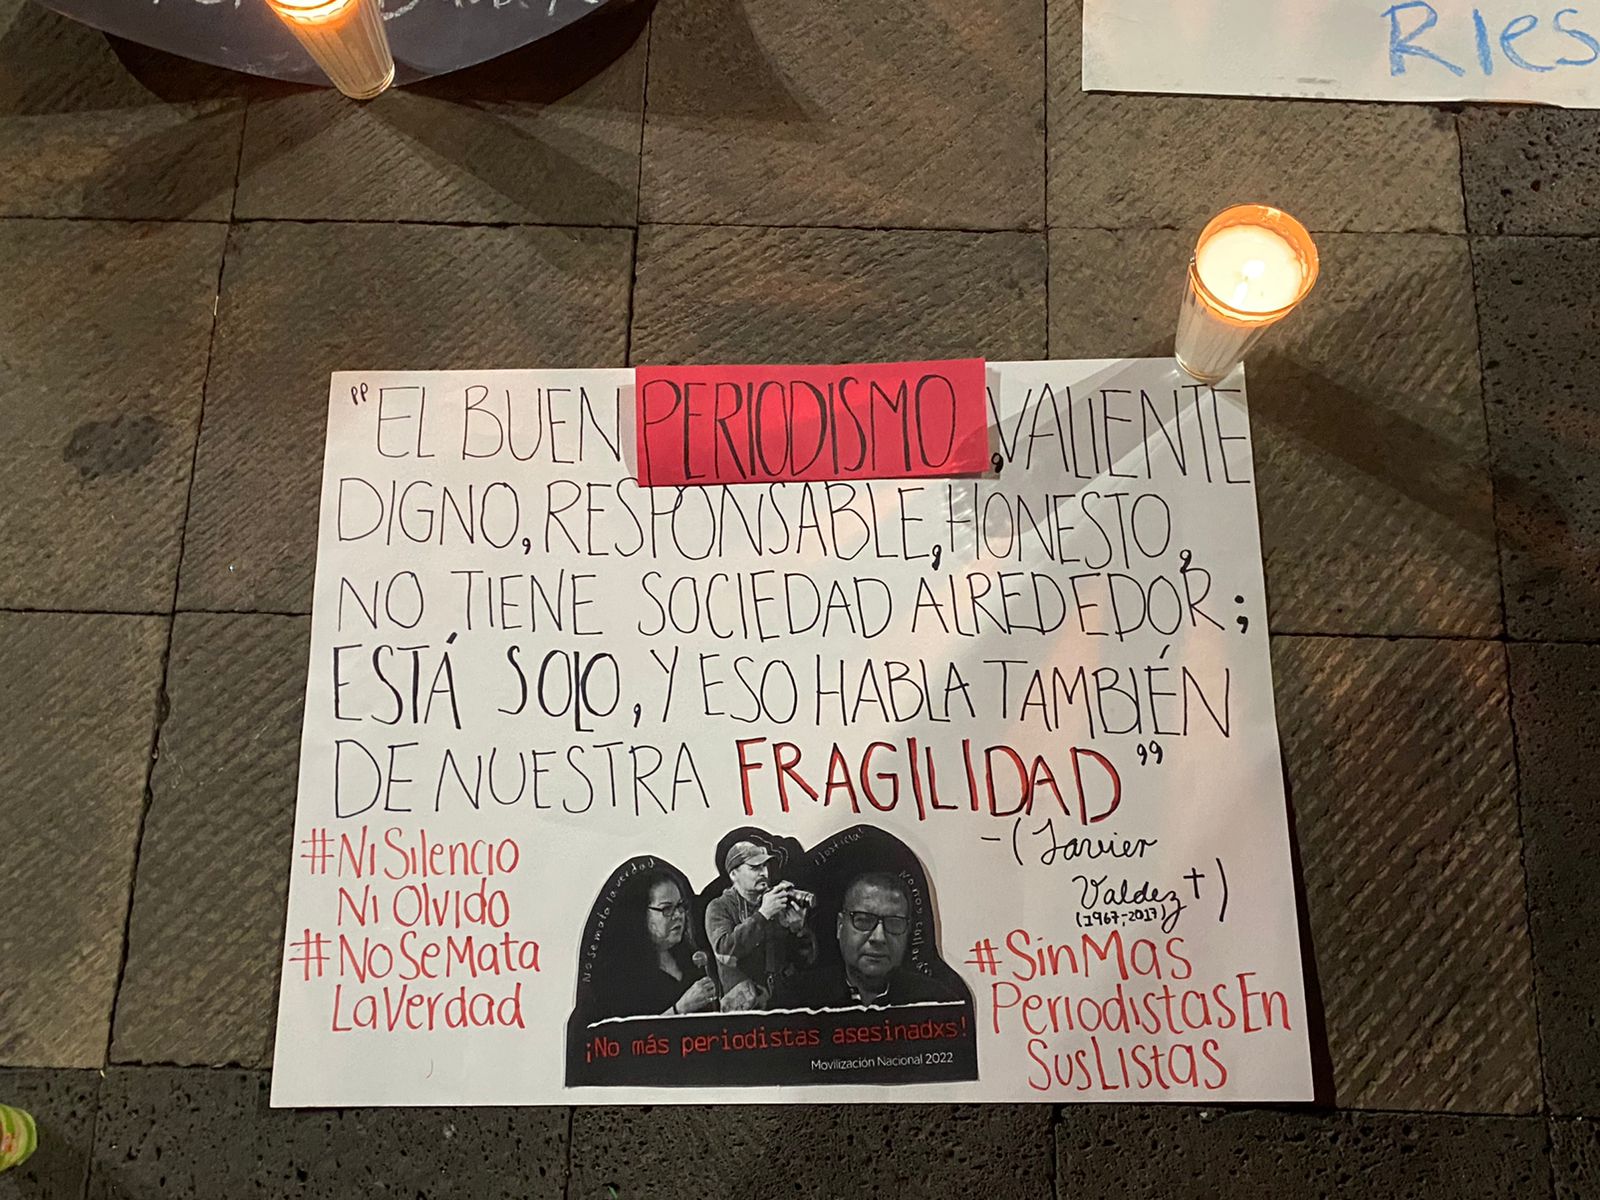 Ries
"EL BUEN PERIODISMO, VALIENTE
DIGNO, RESPONSABLE, HONESTO,
NO TIENE SOCIEDAD ALREDEDOR;
ESTÁ SOLO, Y ESO HABLA TAMBIÉN
DE NUESTRA FRAGILIDAD"
-(Javier
Valdez †)
(1967-2017)
#NiSilencio
Ni Olvido
#NoSeMata
LaVerdad
No se mata la verdad
¡Justicia!
¡No más periodistas asesinadxs!
Movilización Nacional 2022
#SinMas
PeriodistasEn
SusListas